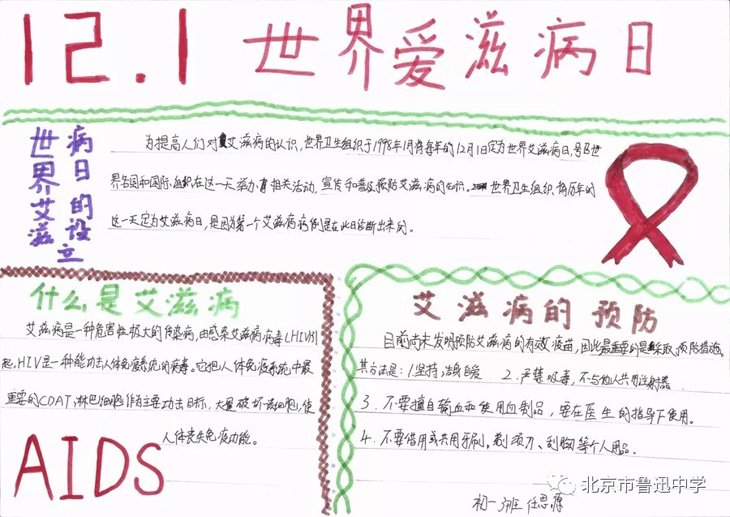 12.1 世界爱滋病日
世界艾滋
病日的设立
为提高人们对艾滋病的认识,世界卫生组织于1998年1月将每年的12月1日定为世界艾滋病日,号召世
界各国和国际组织在这一天举办有相关活动,宣传和普及预防艾滋病的知识。世界卫生组织将历年的
这一天定为艾滋病日,是因为第一个艾滋病病例是在此日诊断出来的。
什么是艾滋病
艾滋病是一种危害性极大的传染病,由感染艾滋病病毒(HIV)引
起,HIV是一种能攻击人体免疫系统的病毒。它把人体免疫系统中最
重要的CDAT淋巴细胞作为主要攻击目标,大量破坏该细胞,使
人体丧失免疫功能。
AIDS
艾滋病的预防
目前尚未发明预防艾滋病的有效疫苗,因此最重要的是采取预防措施。
其方法是:1.坚持洁身自爱 2.严禁吸毒,不与他人共用注射器
3.不要擅自输血和使用血制品,要在医生的指导下使用。
4.不要借用或共用牙刷、剃须刀、刮胸等个人用品。
初一 班 任思源
北京市鲁迅中学